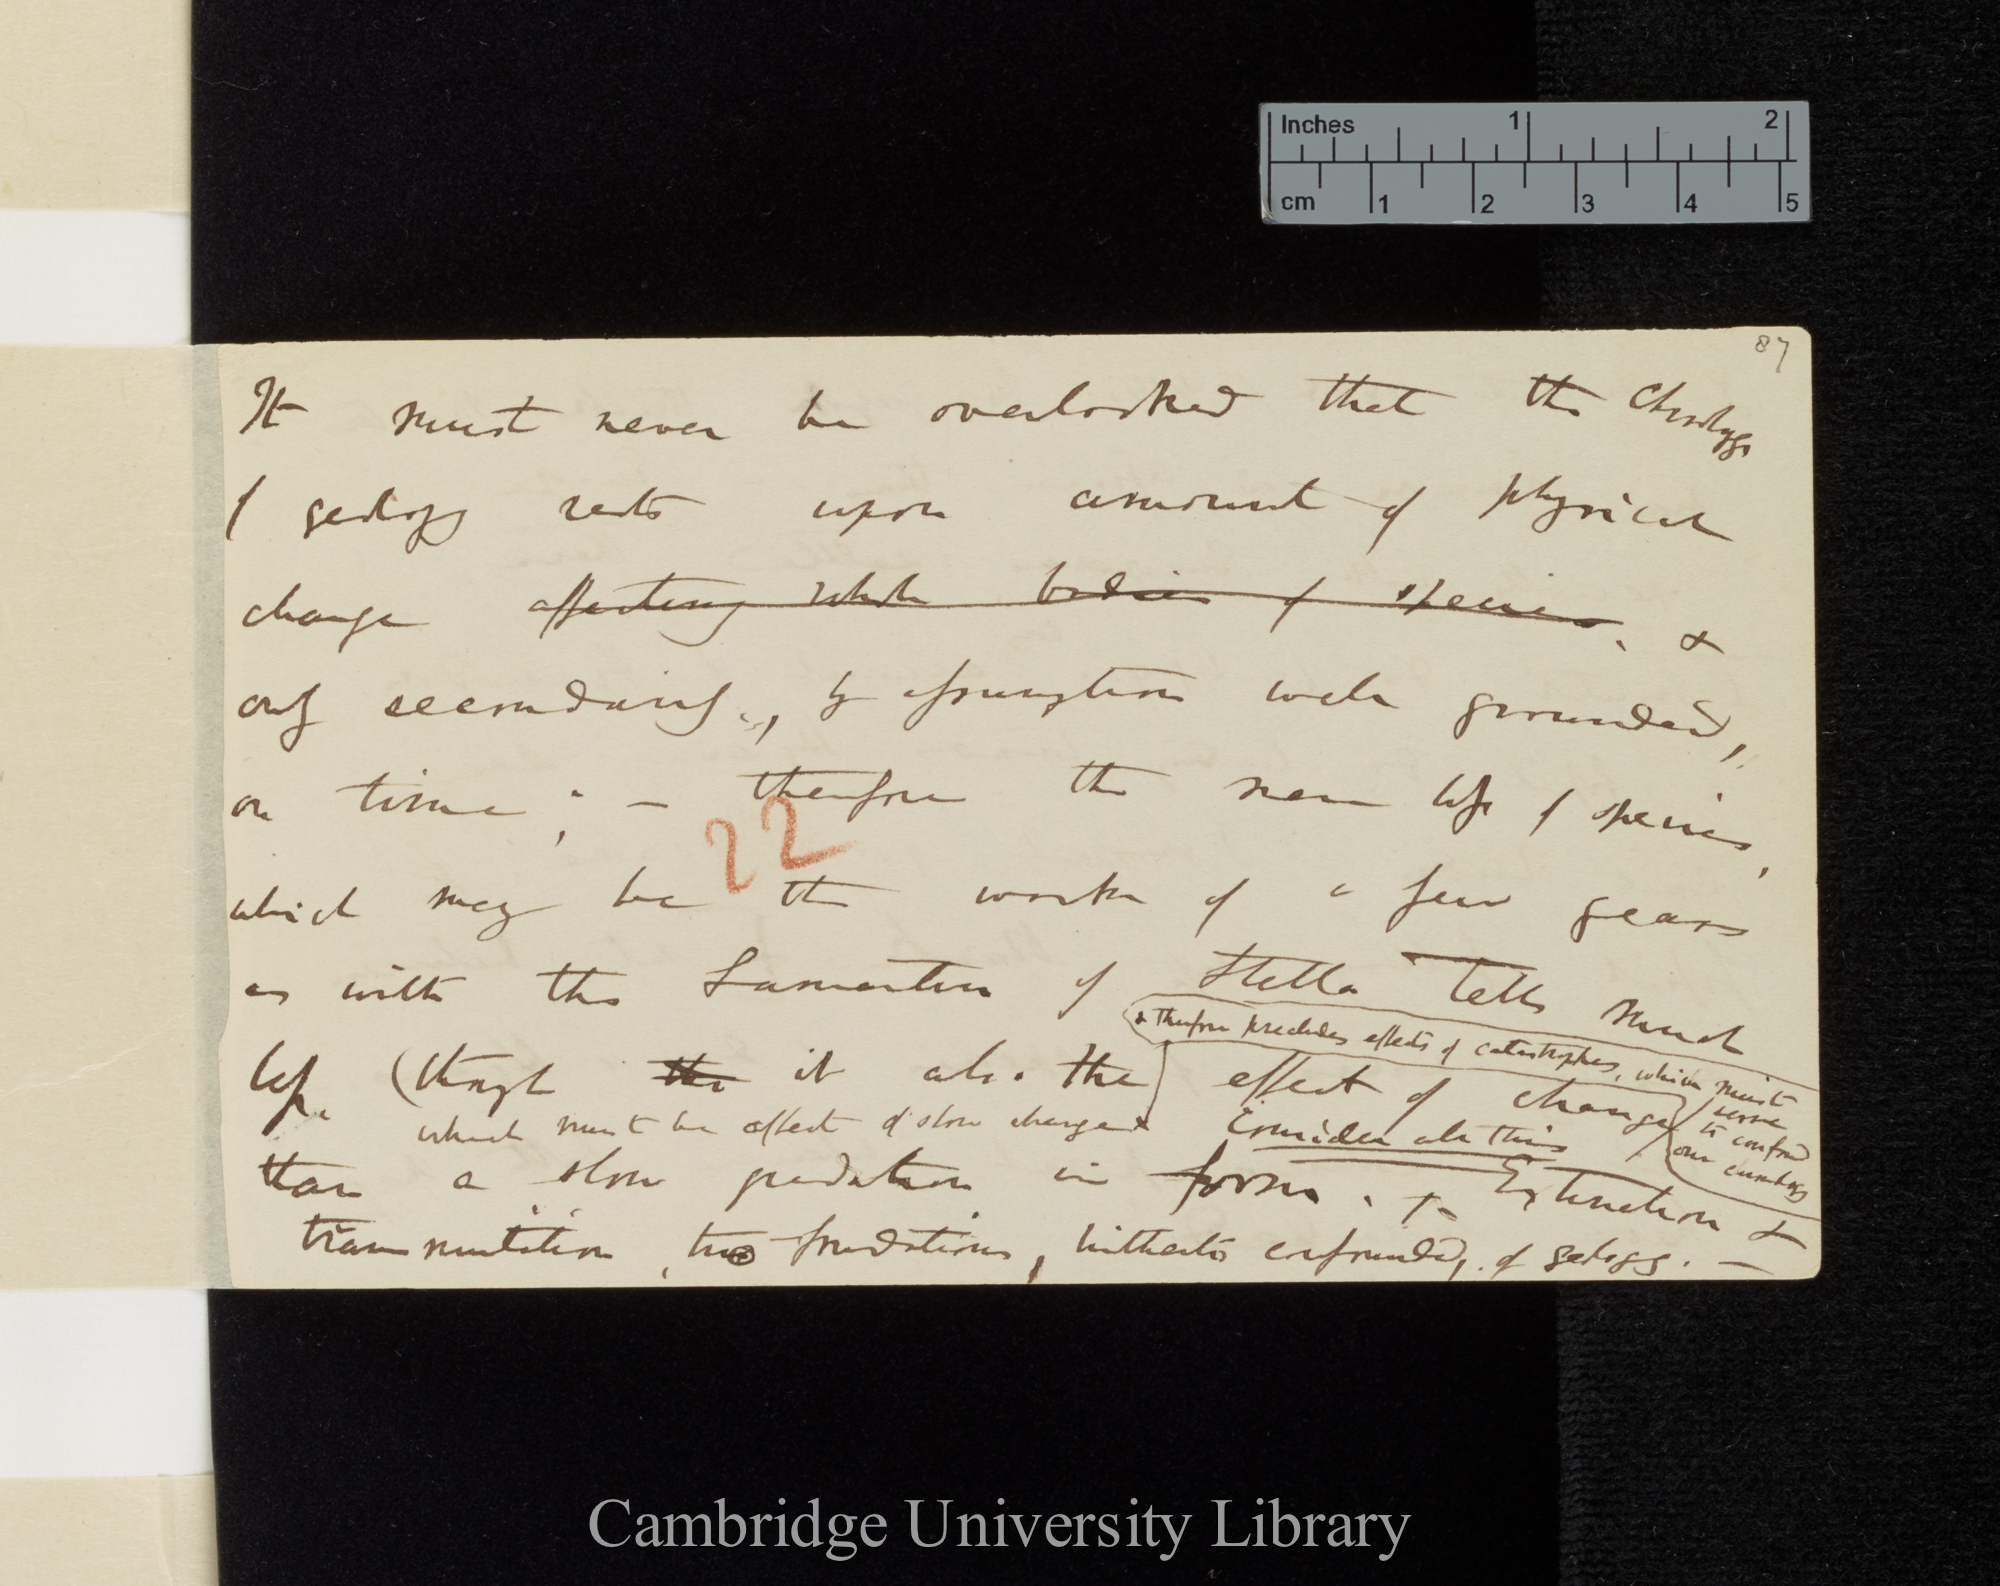 Inches 1 2
cm 1 2 3 4 5
87
It must never be overlooked that the Chronology
of geology rests upon amount of physical
change affecting whole bodies of species, &
only secondarily, by assumption well grounded,
on time; — therefore the mere loss of species,
which may be the work of a few years
as with the Lamantin of Stella tells much
& therefore precludes effects of catastrophes, which must
serve
to confound
our
less. (though the it also the effect of change
which must be effect of slow change & Consider all this
than a slow gradation in form. + Extinction &
transmutation, two foundations, hitherto confounded, of geology. —
22
Cambridge University Library